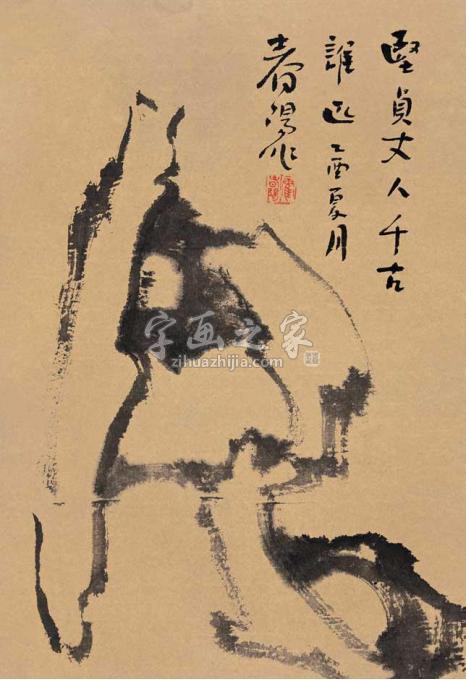 堅貞丈人千古
誰匹乙酉夏月
春陽作
字画之家
zihuazhijia.com